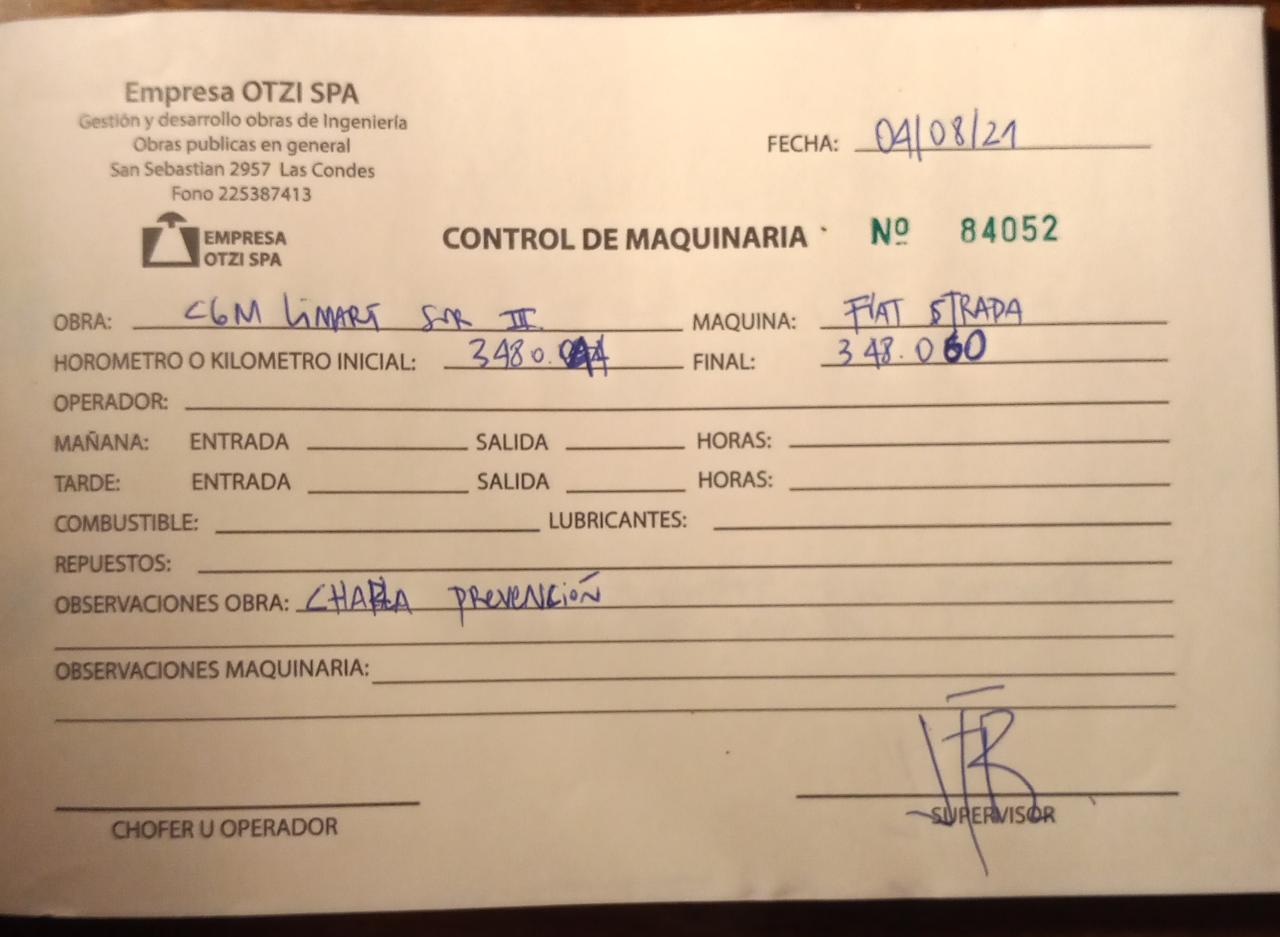 Empresa OTZI SPA
Gestión y desarrollo obras de Ingeniería
Obras publicas en general
San Sebastian 2957 Las Condes
Fono 225387413
FECHA: 04/08/21
EMPRESA
OTZI SPA
CONTROL DE MAQUINARIA Nº 84052
OBRA: CGM LIMARÍ SUR III MAQUINA: FIAT STRADA
HOROMETRO O KILOMETRO INICIAL: FINAL: 348.060
OPERADOR:
MAÑANA: ENTRADA SALIDA HORAS:
TARDE: ENTRADA SALIDA HORAS:
COMBUSTIBLE: LUBRICANTES:
REPUESTOS:
OBSERVACIONES OBRA: CHARLA PREVENCIÓN
OBSERVACIONES MAQUINARIA:
CHOFER U OPERADOR
SUPERVISOR